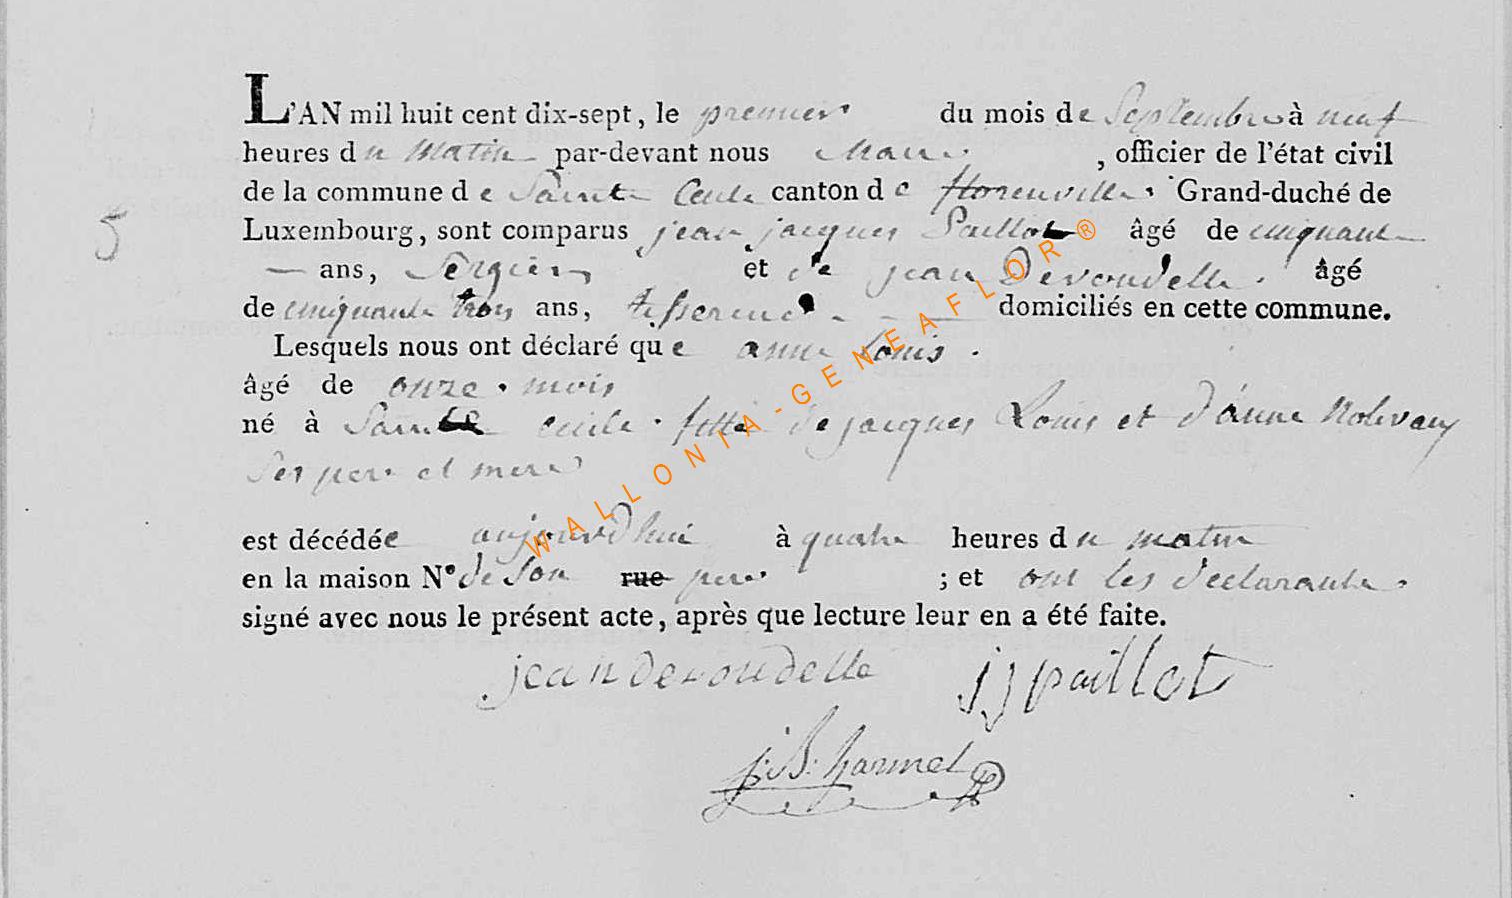 L'AN mil huit cent dix-sept, le premier du mois de Septembre à neuf
heures du matin par-devant nous Maire, officier de l'état civil
de la commune de Sainte Cecile canton de florenville. Grand-duché de
5
Luxembourg, sont comparus jean jacques Paillot âgé de cinquante
— ans, Sergier et de jean Devoudelle. âgé
de cinquante trois ans, tisserand domiciliés en cette commune.
Lesquels nous ont déclaré que anne Louis.
âgé de onze. mois
né à Sainte cecile. fille de jacques Louis et d'anne
Ses pere et mere
est décédée aujourd'hui à quatre heures du matin
en la maison N° de Son rue pere ; et ont les declarants.
signé avec nous le présent acte, après que lecture leur en a été faite.
jean devoudelle jj paillot
j: B: harmel
WALLONIA-GENEAFLOR®